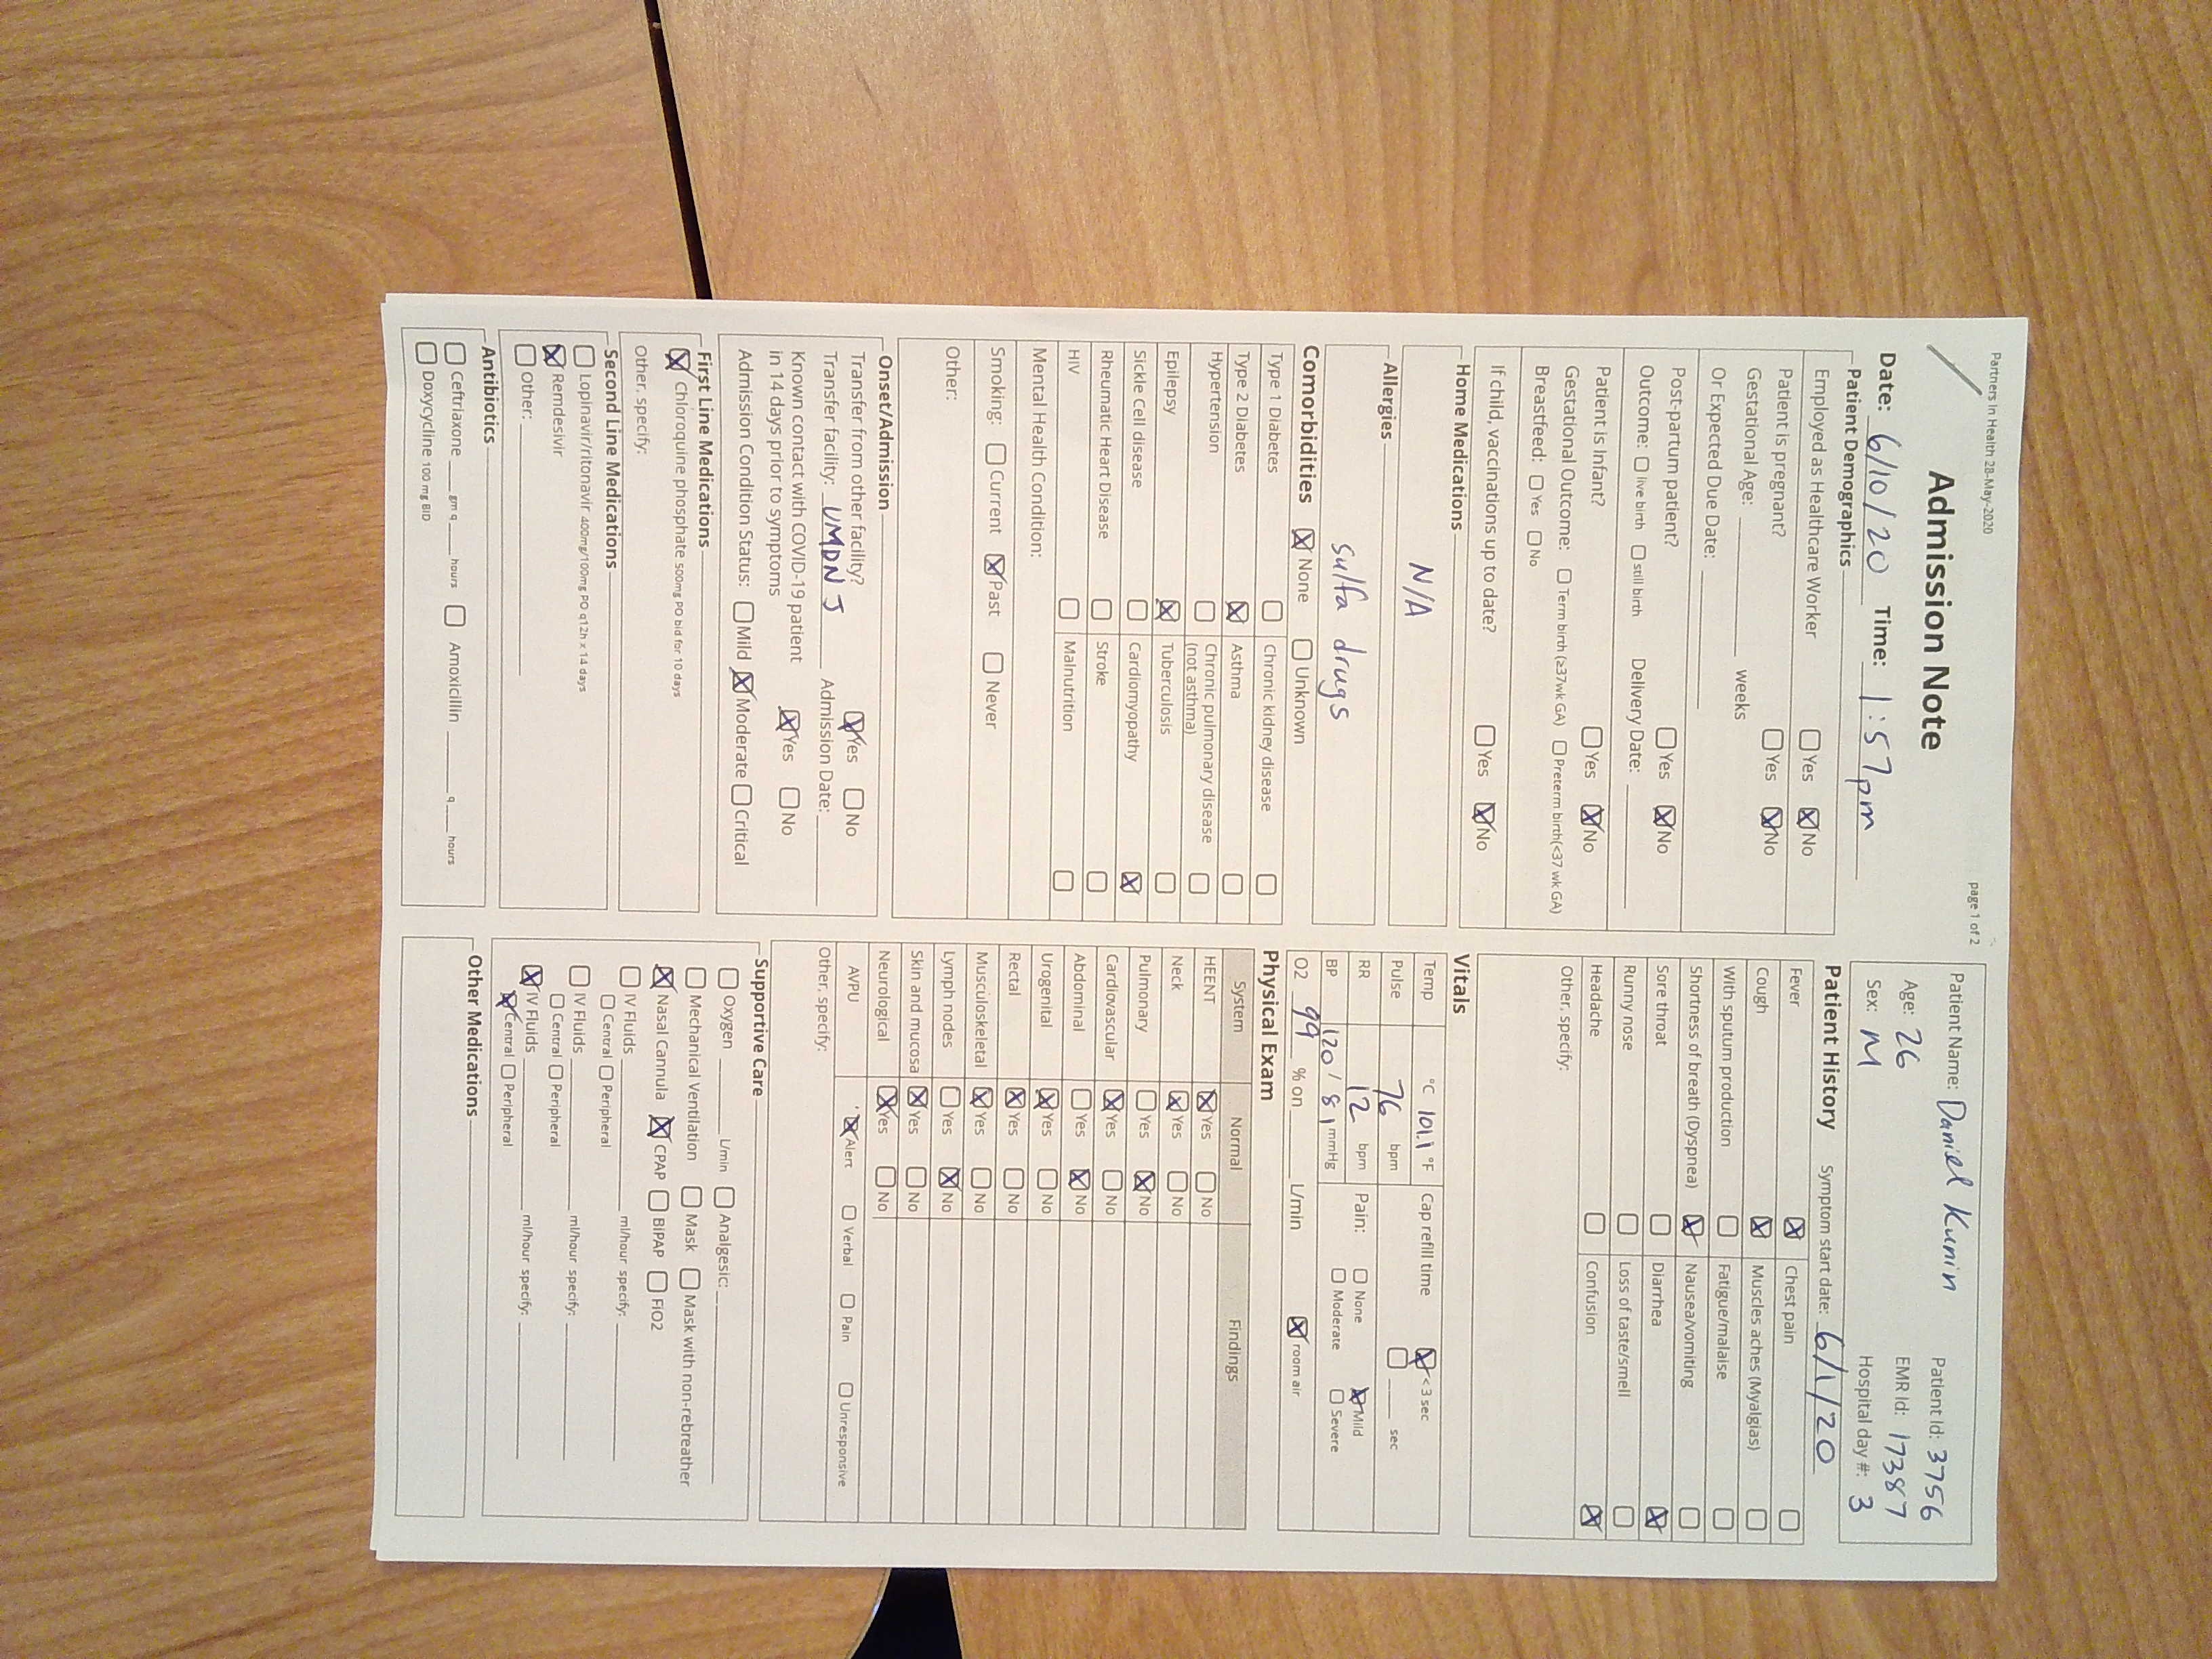 Partners In Health 28-May-2020
page 1 of 2
Admission Note
Date: 6/10/20 Time: 1:57pm
Patient Demographics
Employed as Healthcare Worker Yes No
Patient is pregnant? Yes No
Gestational Age: weeks
Or Expected Due Date:
Post-partum patient? Yes No
Outcome: live birth still birth Delivery Date:
Patient is Infant? Yes No
Gestational Outcome: Term birth (≥37wk GA) Preterm birth(<37 wk GA)
Breastfeed: Yes No
If child, vaccinations up to date? Yes No
Home Medications
N/A
Allergies
sulfa drugs
Comorbidities None Unknown
Type 1 Diabetes Chronic kidney disease
Type 2 Diabetes Asthma
Hypertension Chronic pulmonary disease
(not asthma)
Epilepsy Tuberculosis
Sickle Cell disease Cardiomyopathy
Rheumatic Heart Disease Stroke
HIV Malnutrition
Mental Health Condition:
Smoking: Current Past Never
Other:
Onset/Admission
Transfer from other facility? Yes No
Transfer facility: UMDNJ Admission Date:
Known contact with COVID-19 patient
in 14 days prior to symptoms Yes No
Admission Condition Status: Mild Moderate Critical
First Line Medications
Chloroquine phosphate 500mg PO bid for 10 days
Other, specify:
Second Line Medications
Lopinavir/ritonavir 400mg/100mg PO q12h x 14 days
Remdesivir
Other:
Antibiotics
Ceftriaxone gm q hours Amoxicillin q hours
Doxycycline 100 mg BID
Patient Name: Daniel Kunin Patient Id: 3756
Age: 26 EMR Id: 17387
Sex: M Hospital day #: 3
Patient History Symptom start date: 6/1/20
Fever Chest pain
Cough Muscles aches (Myalgias)
With sputum production Fatigue/malaise
Shortness of breath (Dyspnea) Nausea/vomiting
Sore throat Diarrhea
Runny nose Loss of taste/smell
Headache Confusion
Other, specify:
Vitals
Temp °C 101.1 °F Cap refill time < 3 sec
Pulse 76 bpm sec
RR 12 bpm Pain: None Mild
BP 120/81 mmHg Moderate Severe
O2 99 % on L/min room air
Physical Exam
System Normal Findings
HEENT Yes No
Neck Yes No
Pulmonary Yes No
Cardiovascular Yes No
Abdominal Yes No
Urogenital Yes No
Rectal Yes No
Musculoskeletal Yes No
Lymph nodes Yes No
Skin and mucosa Yes No
Neurological Yes No
AVPU Alert Verbal Pain Unresponsive
Other, specify:
Supportive Care
Oxygen L/min Analgesic:
Mechanical Ventilation Mask Mask with non-rebreather
Nasal Cannula CPAP BiPAP FiO2
IV Fluids ml/hour specify:
Central Peripheral
IV Fluids ml/hour specify:
Central Peripheral
IV Fluids ml/hour specify:
Central Peripheral
Other Medications